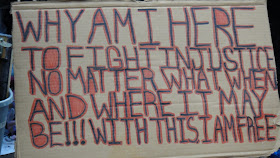 WHY AM I HERE
TO FIGHT INJUSTICE
NO MATTER WHAT WHEN
AND WHERE IT MAY
BE!!! WITH THIS I AM FREE